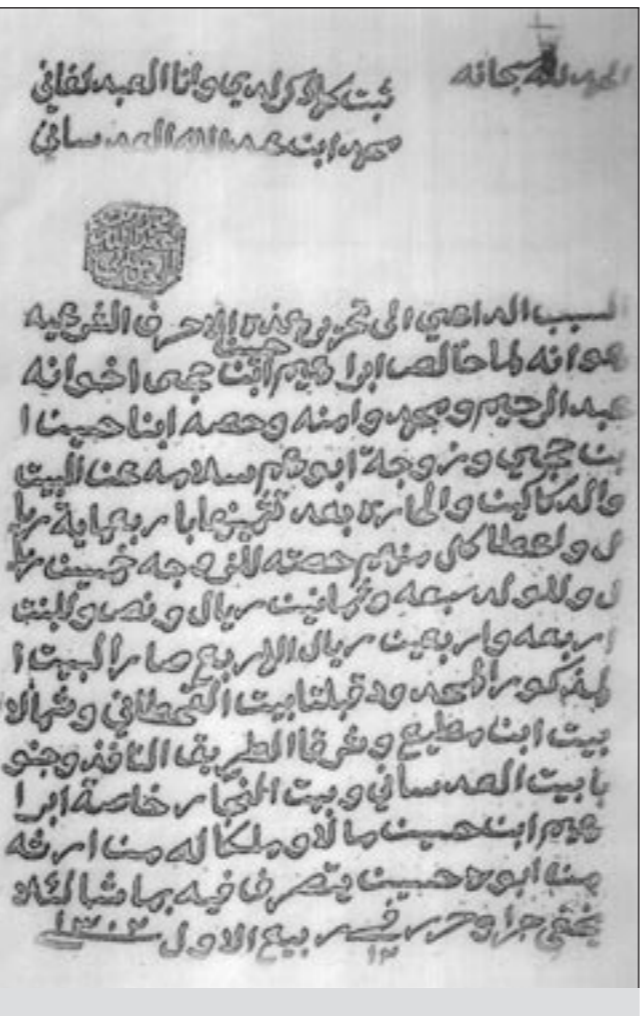 الحمد لله سبحانه
ثبت كما ذكر لدي وانا العبد الفاني
محمد ابن عبد الله العدساني
السبب الداعي الى تحرير هذه الاحرف الشرعيه
هو انه لما خالص ابراهيم ابن حسين حجي اخوانه
عبد الرحيم ومحمد وامنه وحصه ابنا حسين ا
بن حجي وزوجة ابوهم سلامه عن البيت
والدكاكين والحاره بعد تثمينها باربعماية ريا
ل واعطا كل منهم حصته للزوجه خمسين ريا
ل وللولد سبعه وثمانين ريال ونص وللبنت
اربعه واربعين ريال الاربع صار البيت ا
لمذكور المحدود قبلتا بيت القحطاني وشمالا
بيت ابن مطيع وشرقا الطريق النافذ وجنو
با بيت العدساني وبيت النجار خاصة ابرا
هيم ابن حسين مالا وملكا له من ارثه
من ابوه حسين يتصرف فيه بما شا لئلا
يخفى جرا وحرر في ١٢ ربيع الاول ١٣٠٢